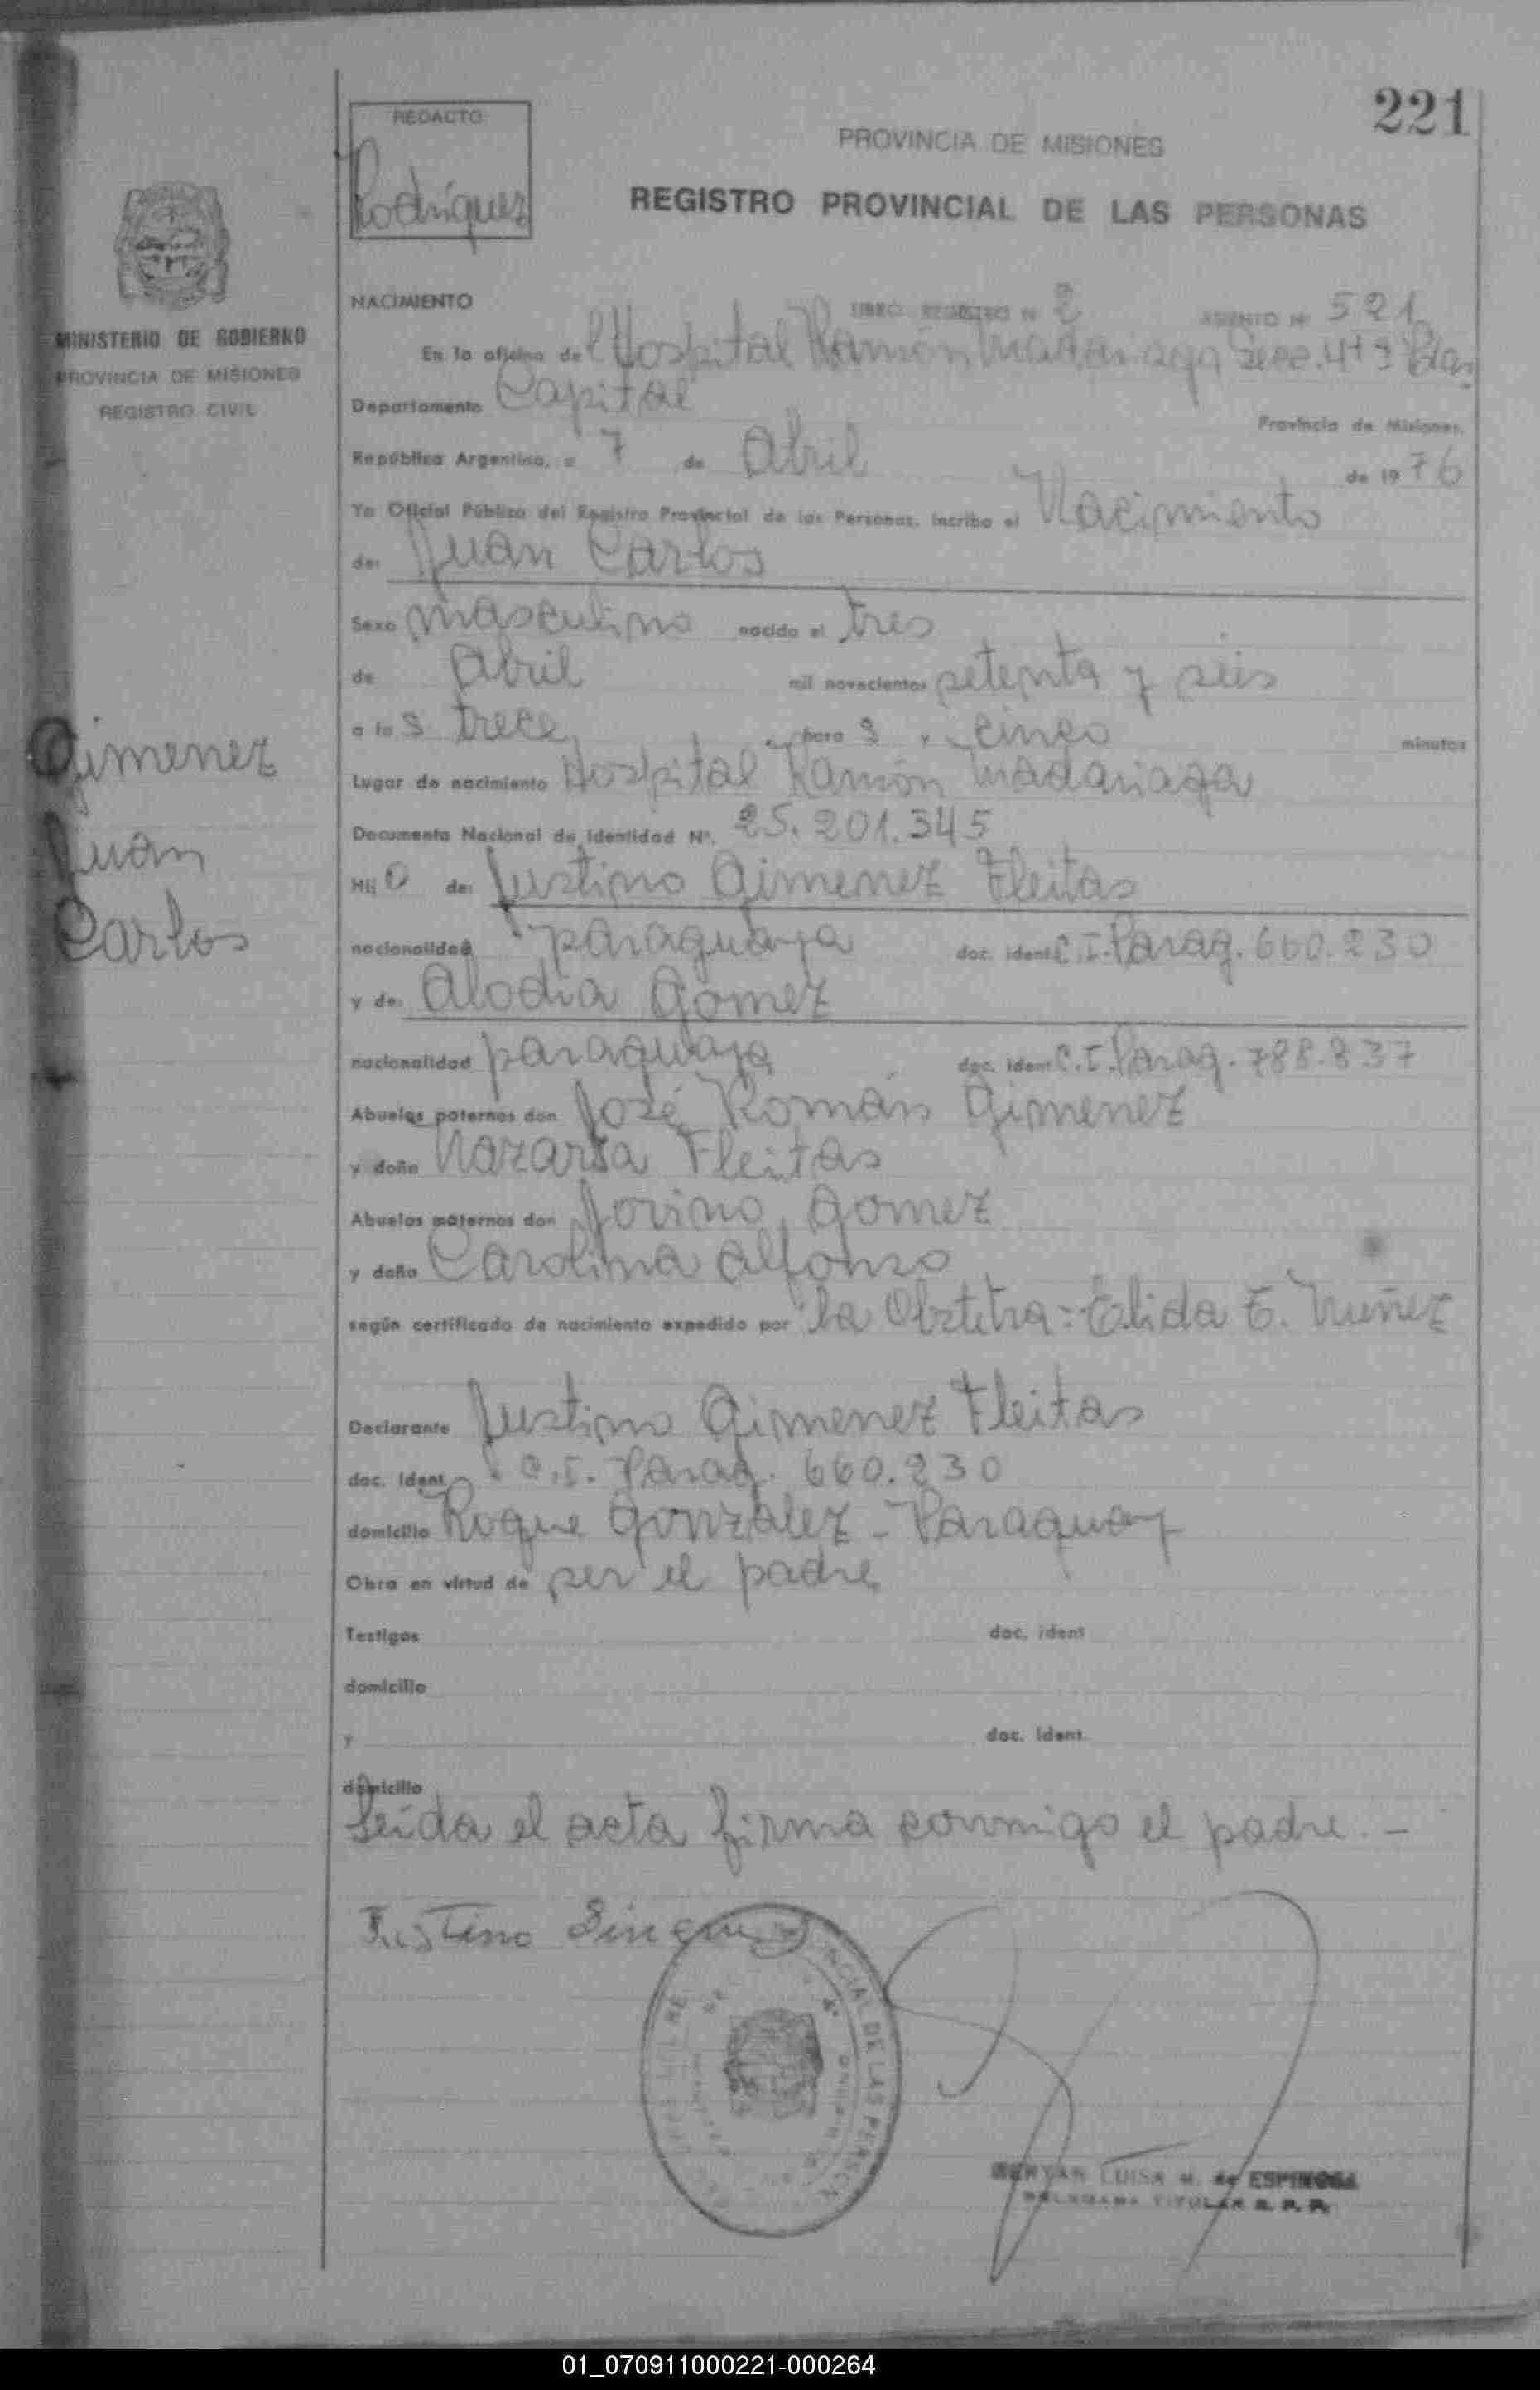 221
REDACTO
Rodríguez
PROVINCIA DE MISIONES
REGISTRO PROVINCIAL DE LAS PERSONAS
MINISTERIO DE GOBIERNO
PROVINCIA DE MISIONES
REGISTRO CIVIL
NACIMIENTO LIBRO REGISTRO Nº 2 ASIENTO Nº 521
En la oficina del Hospital Ramón Madariaga Secc. 4ta Pdas
Departamento Capital Provincia de Misiones.
República Argentina, a 7 de Abril de 1976
Yo Oficial Público del Registro Provincial de las Personas, incribo el Nacimiento
de: Juan Carlos
Sexo masculino nacido el tres
de Abril mil novecientos setenta y seis
a las trece horas y cinco minutos
Gimenez
Juan
Carlos
Lugar de nacimiento Hospital Ramón Madariaga
Documento Nacional de Identidad Nº. 25.201.345
Hijo de: Justino Gimenez Fleitas
nacionalidad paraguaya doc. ident C.I. Parag. 660.230
y de: Alodia Gomez
nacionalidad paraguaya doc. ident C.I. Parag. 788.837
Abuelos paternos don José Román Gimenez
y doña Nazaria Fleitas
Abuelos maternos don Jovino Gomez
y doña Carolina Alfonso
según certificado de nacimiento expedido por la Obstetra: Elida E. Nuñez
Declarante Justino Gimenez Fleitas
doc. ident C.I. Parag. 660.230
domicilio Roque Gonzalez - Paraguay
Obra en virtud de ser el padre
Testigos doc. ident
domicilio
y doc. ident.
domicilio
Leída el acta firma conmigo el padre. -
Justino
INCIAL DE LAS PERSON
LUISA M. de ESPINOSA
TITULAR R. P. P.
01_070911000221-000264